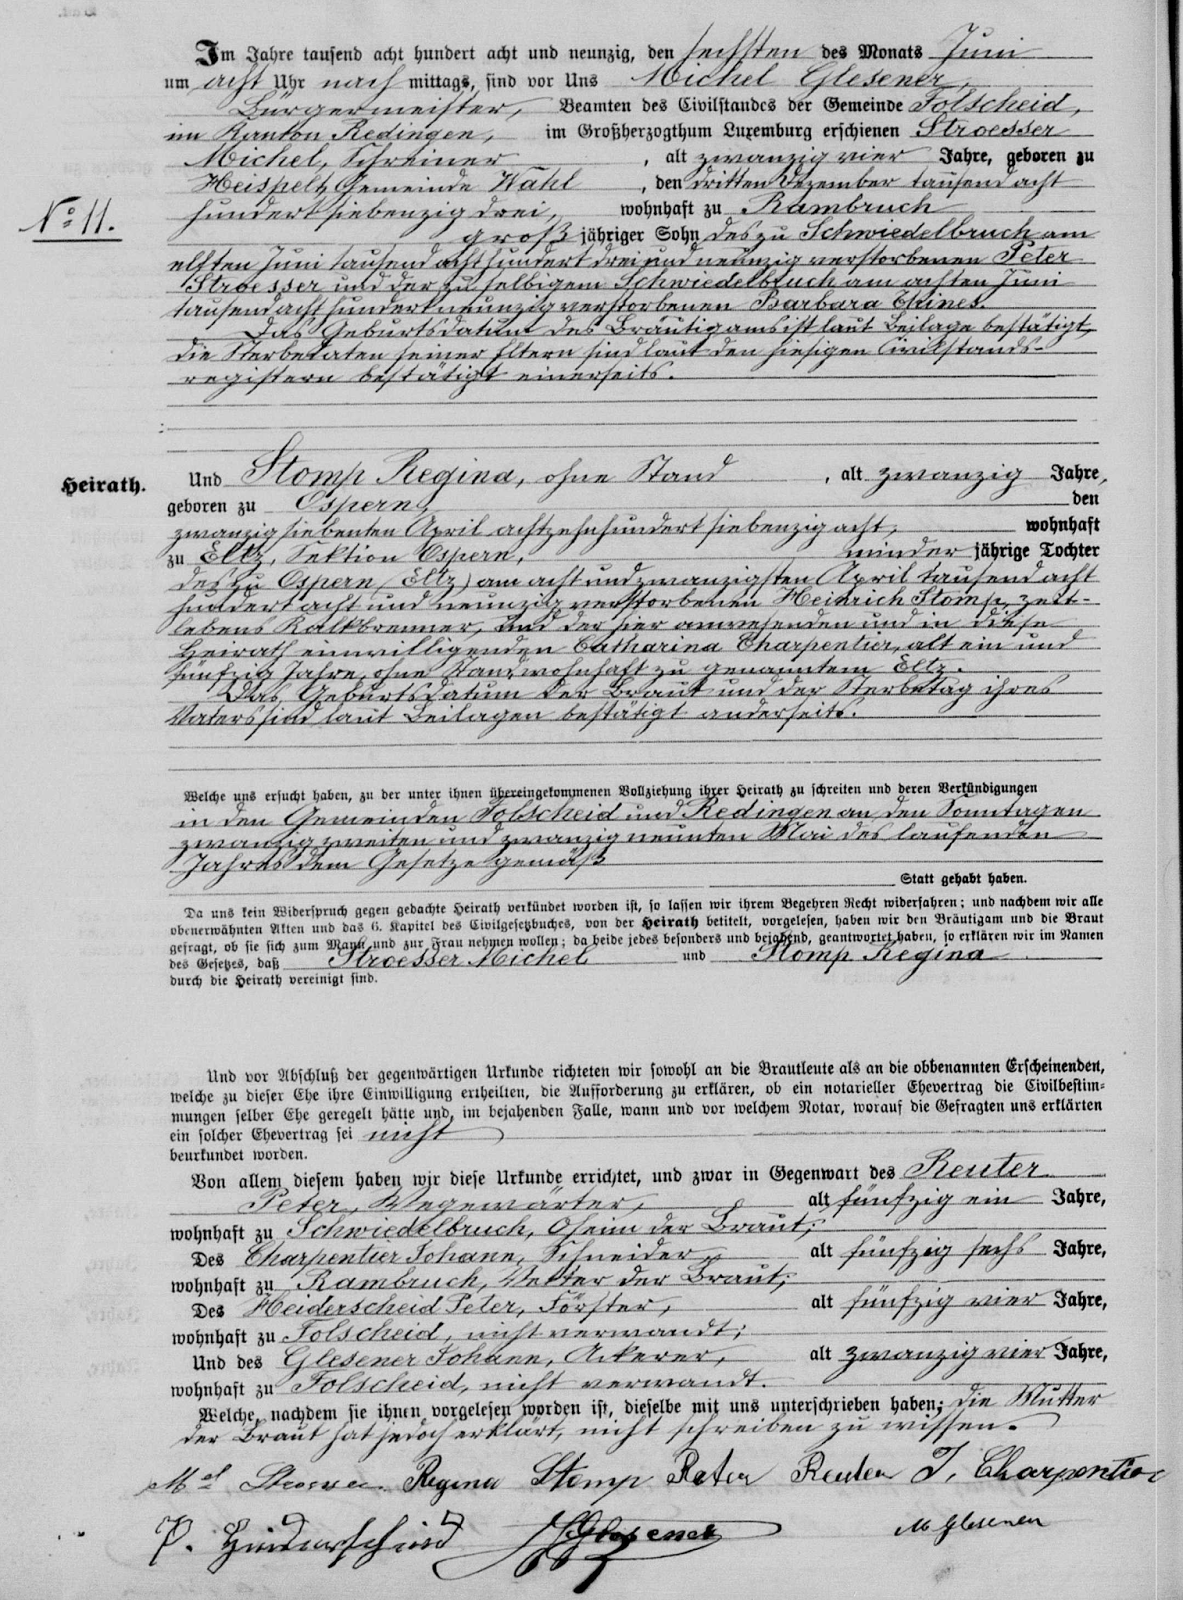 Im Jahre tausend acht hundert acht und neunzig, den sechsten des Monats Juni
um acht Uhr nach mittags, sind vor Uns Michel Glesener,
Bürgermeister, Beamten des Civilstandes der Gemeinde Folscheid,
im Kanton Redingen, im Großherzogthum Luxemburg erschienen Stroesser
Michel, Schreiner, alt zwanzig vier Jahre, geboren zu
Heispelt, Gemeinde Wahl, den dritten Dezember tausend acht
No 11.
hundert siebenzig drei, wohnhaft zu Rambruch
groß jähriger Sohn des zu Schwiedelbruch am
elften Juni tausend acht hundert drei und neunzig verstorbenen Peter
Stroesser und der zu selbigem Schwiedelbruch am achten Juni
tausend acht hundert neunzig verstorbenen Barbara Thines.
Das Geburtsdatum des Bräutigams ist laut Beilage bestätigt,
die Sterbedaten seiner Eltern sind laut den hiesigen Civilstands-
registern bestätigt einerseits.
Heirath.
Und Stomp Regina, ohne Stand, alt zwanzig Jahre,
geboren zu Ospern, den
zwanzig siebenten April achtzehnhundert siebenzig acht, wohnhaft
zu Eltz, Sektion Ospern, minder jährige Tochter
des zu Ospern (Eltz) am acht und zwanzigsten April tausend acht
hundert acht und neunzig verstorbenen Heinrich Stomp, zeit-
lebens Kalkbrenner, und der hier anwesenden und in diese
Heirath einwilligenden Catharina Charpentier, alt ein und
fünfzig Jahre, ohne Stand, wohnhaft zu genanntem Eltz.
Das Geburtsdatum der Braut und der Sterbetag ihres
Vaters sind laut Beilagen bestätigt anderseits.
Welche uns ersucht haben, zu der unter ihnen übereingekommenen Vollziehung ihrer Heirath zu schreiten und deren Verkündigungen
in den Gemeinden Folscheid und Redingen an den Sonntagen
zwanzig zweiten und zwanzig neunten Mai des laufenden
Jahres dem Gesetze gemäß
Statt gehabt haben.
Da uns kein Widerspruch gegen gedachte Heirath verkündet worden ist, so lassen wir ihrem Begehren Recht widerfahren; und nachdem wir alle
obenerwähnten Akten und das 6. Kapitel des Civilgesetzbuches, von der Heirath betitelt, vorgelesen, haben wir den Bräutigam und die Braut
gefragt, ob sie sich zum Mann und zur Frau nehmen wollen; da beide jedes besonders und bejahend, geantwortet haben, so erklären wir im Namen
des Gesetzes, daß Stroesser Michel und Stomp Regina
durch die Heirath vereinigt sind.
Und vor Abschluß der gegenwärtigen Urkunde richteten wir sowohl an die Brautleute als an die obbenannten Erscheinenden,
welche zu dieser Ehe ihre Einwilligung ertheilten, die Aufforderung zu erklären, ob ein notarieller Ehevertrag die Civilbestim-
mungen selber Ehe geregelt hätte und, im bejahenden Falle, wann und vor welchem Notar, worauf die Gefragten uns erklärten
ein solcher Ehevertrag sei nicht
beurkundet worden.
Von allem diesem haben wir diese Urkunde errichtet, und zwar in Gegenwart des Reuter
Peter, Wegewärter, alt fünfzig ein Jahre,
wohnhaft zu Schwiedelbruch, Oheim der Braut;
Des Charpentier Johann, Schneider, alt fünfzig sechs Jahre,
wohnhaft zu Rambruch, Vetter der Braut;
Des Heiderscheid Peter, Förster, alt fünfzig vier Jahre,
wohnhaft zu Folscheid, nicht verwandt;
Und des Glesener Johann, Ackerer, alt zwanzig vier Jahre,
wohnhaft zu Folscheid, nicht verwandt.
Welche, nachdem sie ihnen vorgelesen worden ist, dieselbe mit uns unterschrieben haben; die Mutter
der Braut hat jedoch erklärt, nicht schreiben zu wissen.
Mel Stroesser Regina Stomp Peter Reuter J. Charpentier
P. Heiderscheid J Glesener M Glesener